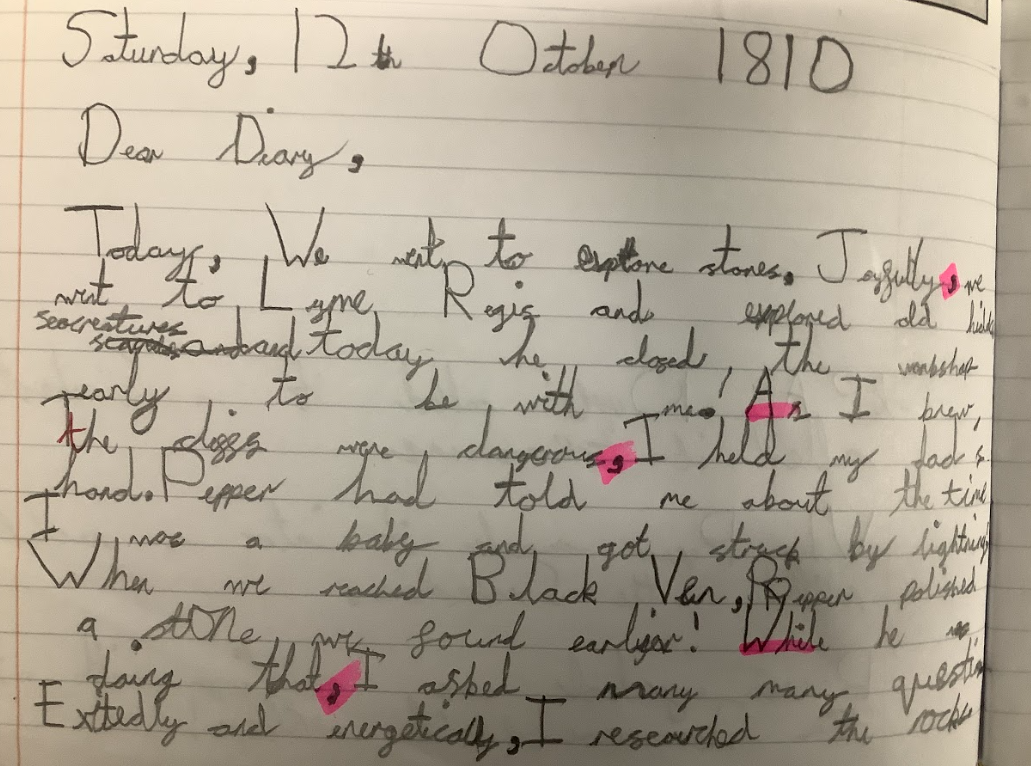 Saturday, 12th October 1810
Dear Diary,
Today, We went to explore stones. Joyfully, we
went to Lyme Regis and explored old
seacreatures
and today he closed, the workshop
early to be with me! As I knew,
the diggs were dangerous, I held my dad's
hand. Pepper had told me about the time
I was a baby and got struck by lightning
When we reached Black Ven, Pepper polished
a stone, we found earliyer! While he was
doing that, I asked many many questin
Exttedly and energetically, I researched the rocks